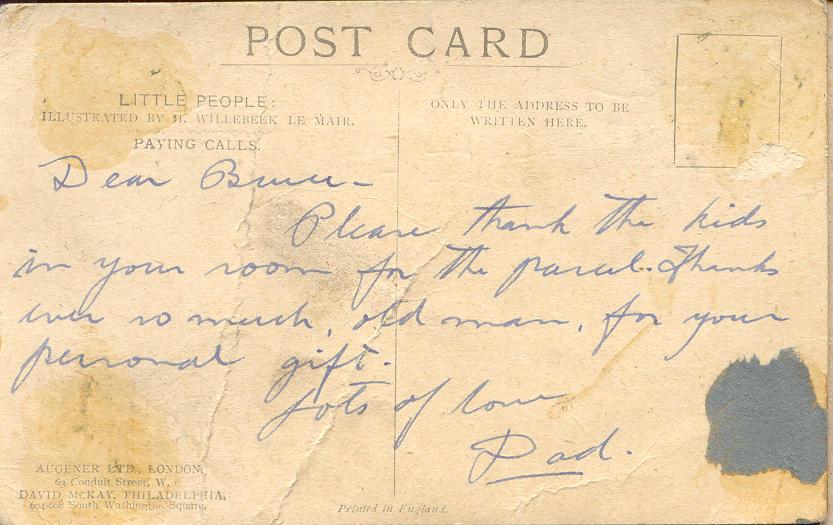 POST CARD
LITTLE PEOPLE:
ILLUSTRATED BY H. WILLEBEEK LE MAIR.
PAYING CALLS.
ONLY THE ADDRESS TO BE
WRITTEN HERE.
Dear Bruce-
Please thank the kids
in your room for the parcel. Thanks
ever so much, old man, for your
personal gift.
Lots of love
Dad.
AUGENER LTD., LONDON,
63 Conduit Street, W. 1
DAVID McKAY, PHILADELPHIA,
604-608 South Washington Square.
Printed in England.